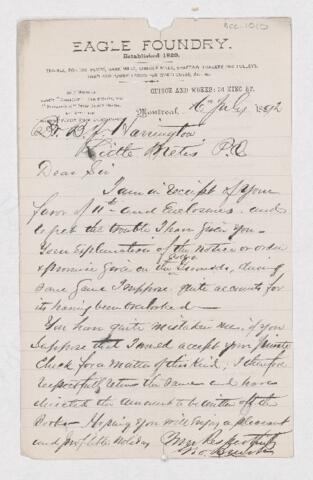 ACC-1010
EAGLE FOUNDRY.
Established 1820.
OFFICE AND WORKS: 24 KING ST.
Montreal, 16 July 1882
Dr B. J. Harrington
Little Metis P.Q
Dear Sir
I am in receipt of your
favor of 11th and Enclosures and
regret the trouble I have given you.
Your Explanation of the notice or order
& promise given on the grounds, during
some Game I suppose quite accounts for
its having been overlooked—
You have quite mistaken me, if you
suppose that I would accept your private
Check for a matter of this kind; I therefore
respectfully return the same and have
directed the amount to be written off the
Books— Hoping you will Enjoy a pleasant
and profitable Holiday
Yours Respectfully
Geo. Brush